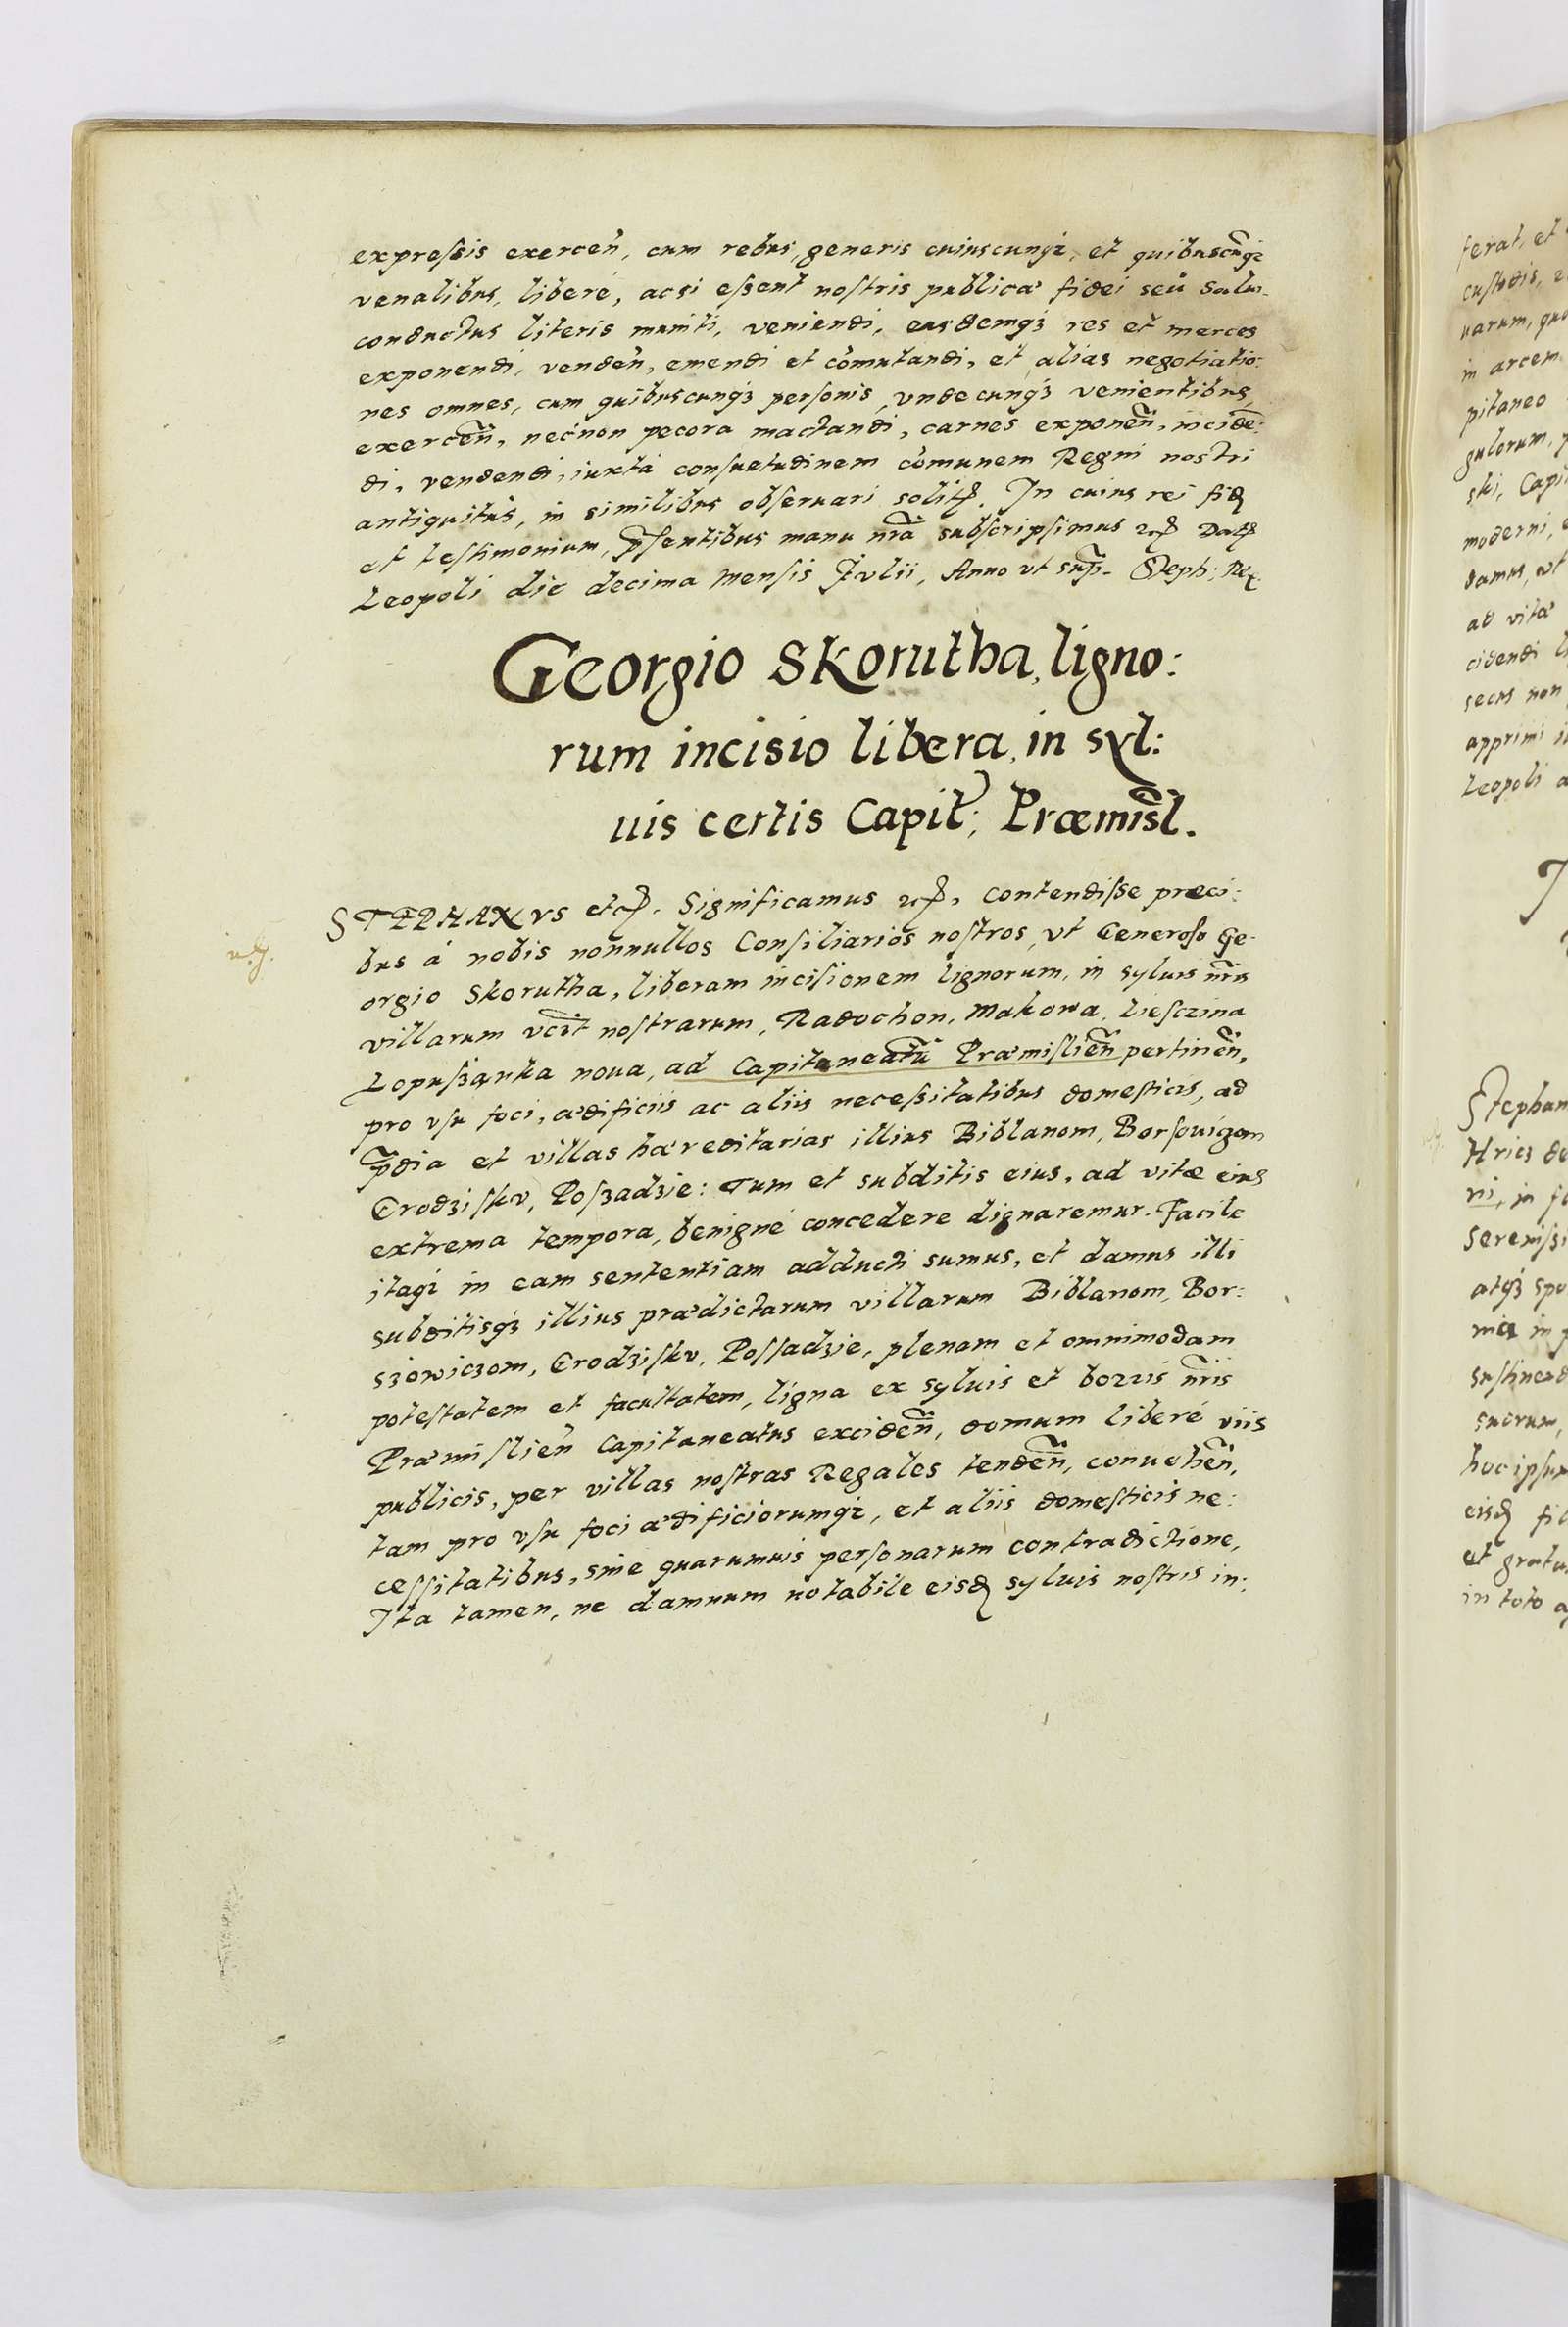 expreſsis exerceñ, cum rebus, generis cuiuscunqꝫ, et quibuscũqꝫ
venalibus, liberé, acsi eſsent noſtris publicæ fidei seu salui
conductus literis muniti, veniendi, easdemqꝫ res et merces
exponendi, vendeñ, emendi et com̃utandi, et alias negotiatio:
nes omnes, cum quibuscunqꝫ perſonis, vndecunqꝫ venientibus,
exerceñ, nećnon pecora mactandi, carnes exponeñ, incidẽ:
di, vendendi, iuxta conſuetudinem com̃unem Regni noſtri
antiquitus, in similibus obſeruari solitꝭ. In cuius rei fidꝫ
et teſtimonium, p̃ſentibus manu nr̃a subſcripſimus ⁊cꝭ Datꝭ
Leopoli die decima mensis Iulii, Anno vt sup̃. Steph: Rex
Georgio Skorutha, ligno:
rum incisio libera, in syl:
uis certis Capit: Præmisl̃.
STEPHANVS etcꝭ. Significamus ⁊cꝭ, contendiſse præci:
bus á nobis nonnullos Conſiliarios noſtros, vt Generoſo Ge-
orgio Skorutha, liberam inciſionem lignorum, in syluis nr̃is
villarum vcz̃t noſtrarum, Radochon, Makowa, Lieſczina
Lopuſzanka noua, ad Capitaneatũ Præmiſlieñ pertineñ,
pro vſu foci, ædificiis ac aliis neceſsitatibus domeſticis, ad
p̃dia et villas hæreditarias illius Biblanom, Borſouiczom
Grodziſku, Poſzadzie: Tum et subditis eius, ad vitæ eius
extrema tempora, benigné concedere dignaremur. Facile
itaqꝫ in eam sententiam adducti sumus, et damus illi
subditisqꝫ illius prædictarum villarum Biblanom, Bor:
szowiczom, Grodziſku, Poſſadzie, plenam et omnimodam
poteſtatem et facultatem, ligna ex syluis et borris nr̃is
Præmiſlieñ Capitaneatus excideñ, domum liberé viis
publicis, per villas noſtras Regales tendeñ, conueheñ,
tam pro vſu foci ædificiorumqꝫ, et aliis domeſticis ne:
ceſſitatibus, sine quarumuis perſonarum contradictione,
Ita tamen, ne damnum notabile eisdꝫ syluis noſtris in:
ferat, et
custodis, e
in arcem
pitaneo
gulorum, p
ski, Capit
moderni, e
damus, vt
ad vitæ
cidendi l
secus non
apprimi
Leopoli a
Stephan
Hricz de
serenissi
atqꝫ spo
suorum,
hoc ipsum
et gratu
in toto